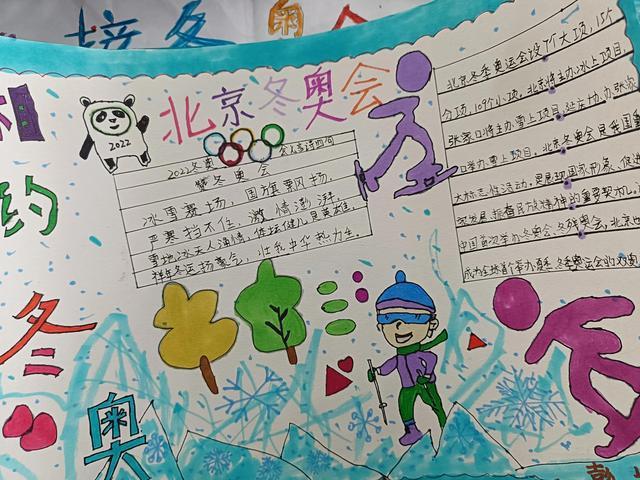 迎接冬奥会
北京冬奥会
约
冬
奥
2022
2022冬奥会人言诗四句
赞冬奥会
冰雪赛场，国旗飘扬，
严寒挡不住，激情澎湃，
雪地冰天人满情，体坛健儿
祥年冬运扬聚会，壮我中华热力生。
北京冬季奥运会设7个大项，15个
分项，109个小项，北京将主办冰上项目，
张家口将主办雪上项目，延庆协办张家
口举办雪上项目，北京冬奥会是我国重
大标志性活动，是展现国家形象，促进
发展，振奋民族精神的重要契机，
中国首次举办冬奥会，冬残奥会，北京
成为全球首个举办夏季，冬季奥运会的双奥